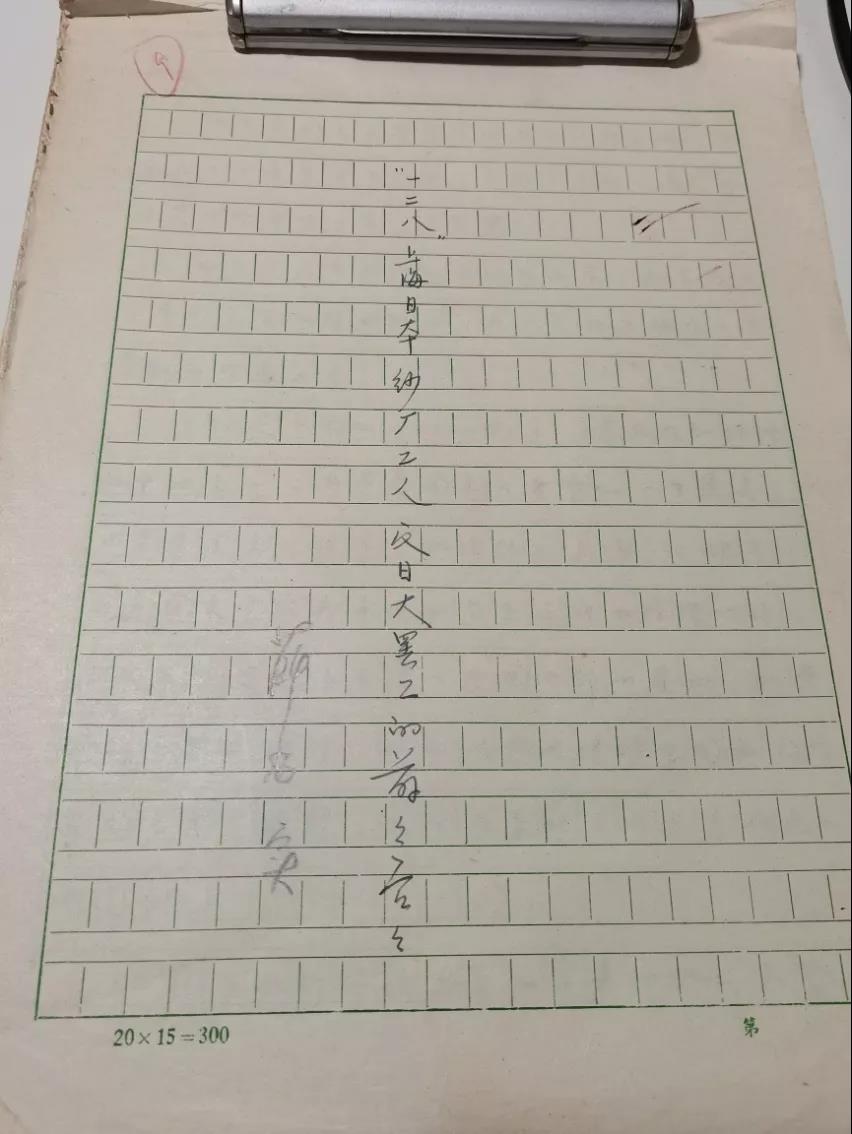 9
“一·二八”上海日本纱厂工人反日大罢工的前々后々
20×15=300
第